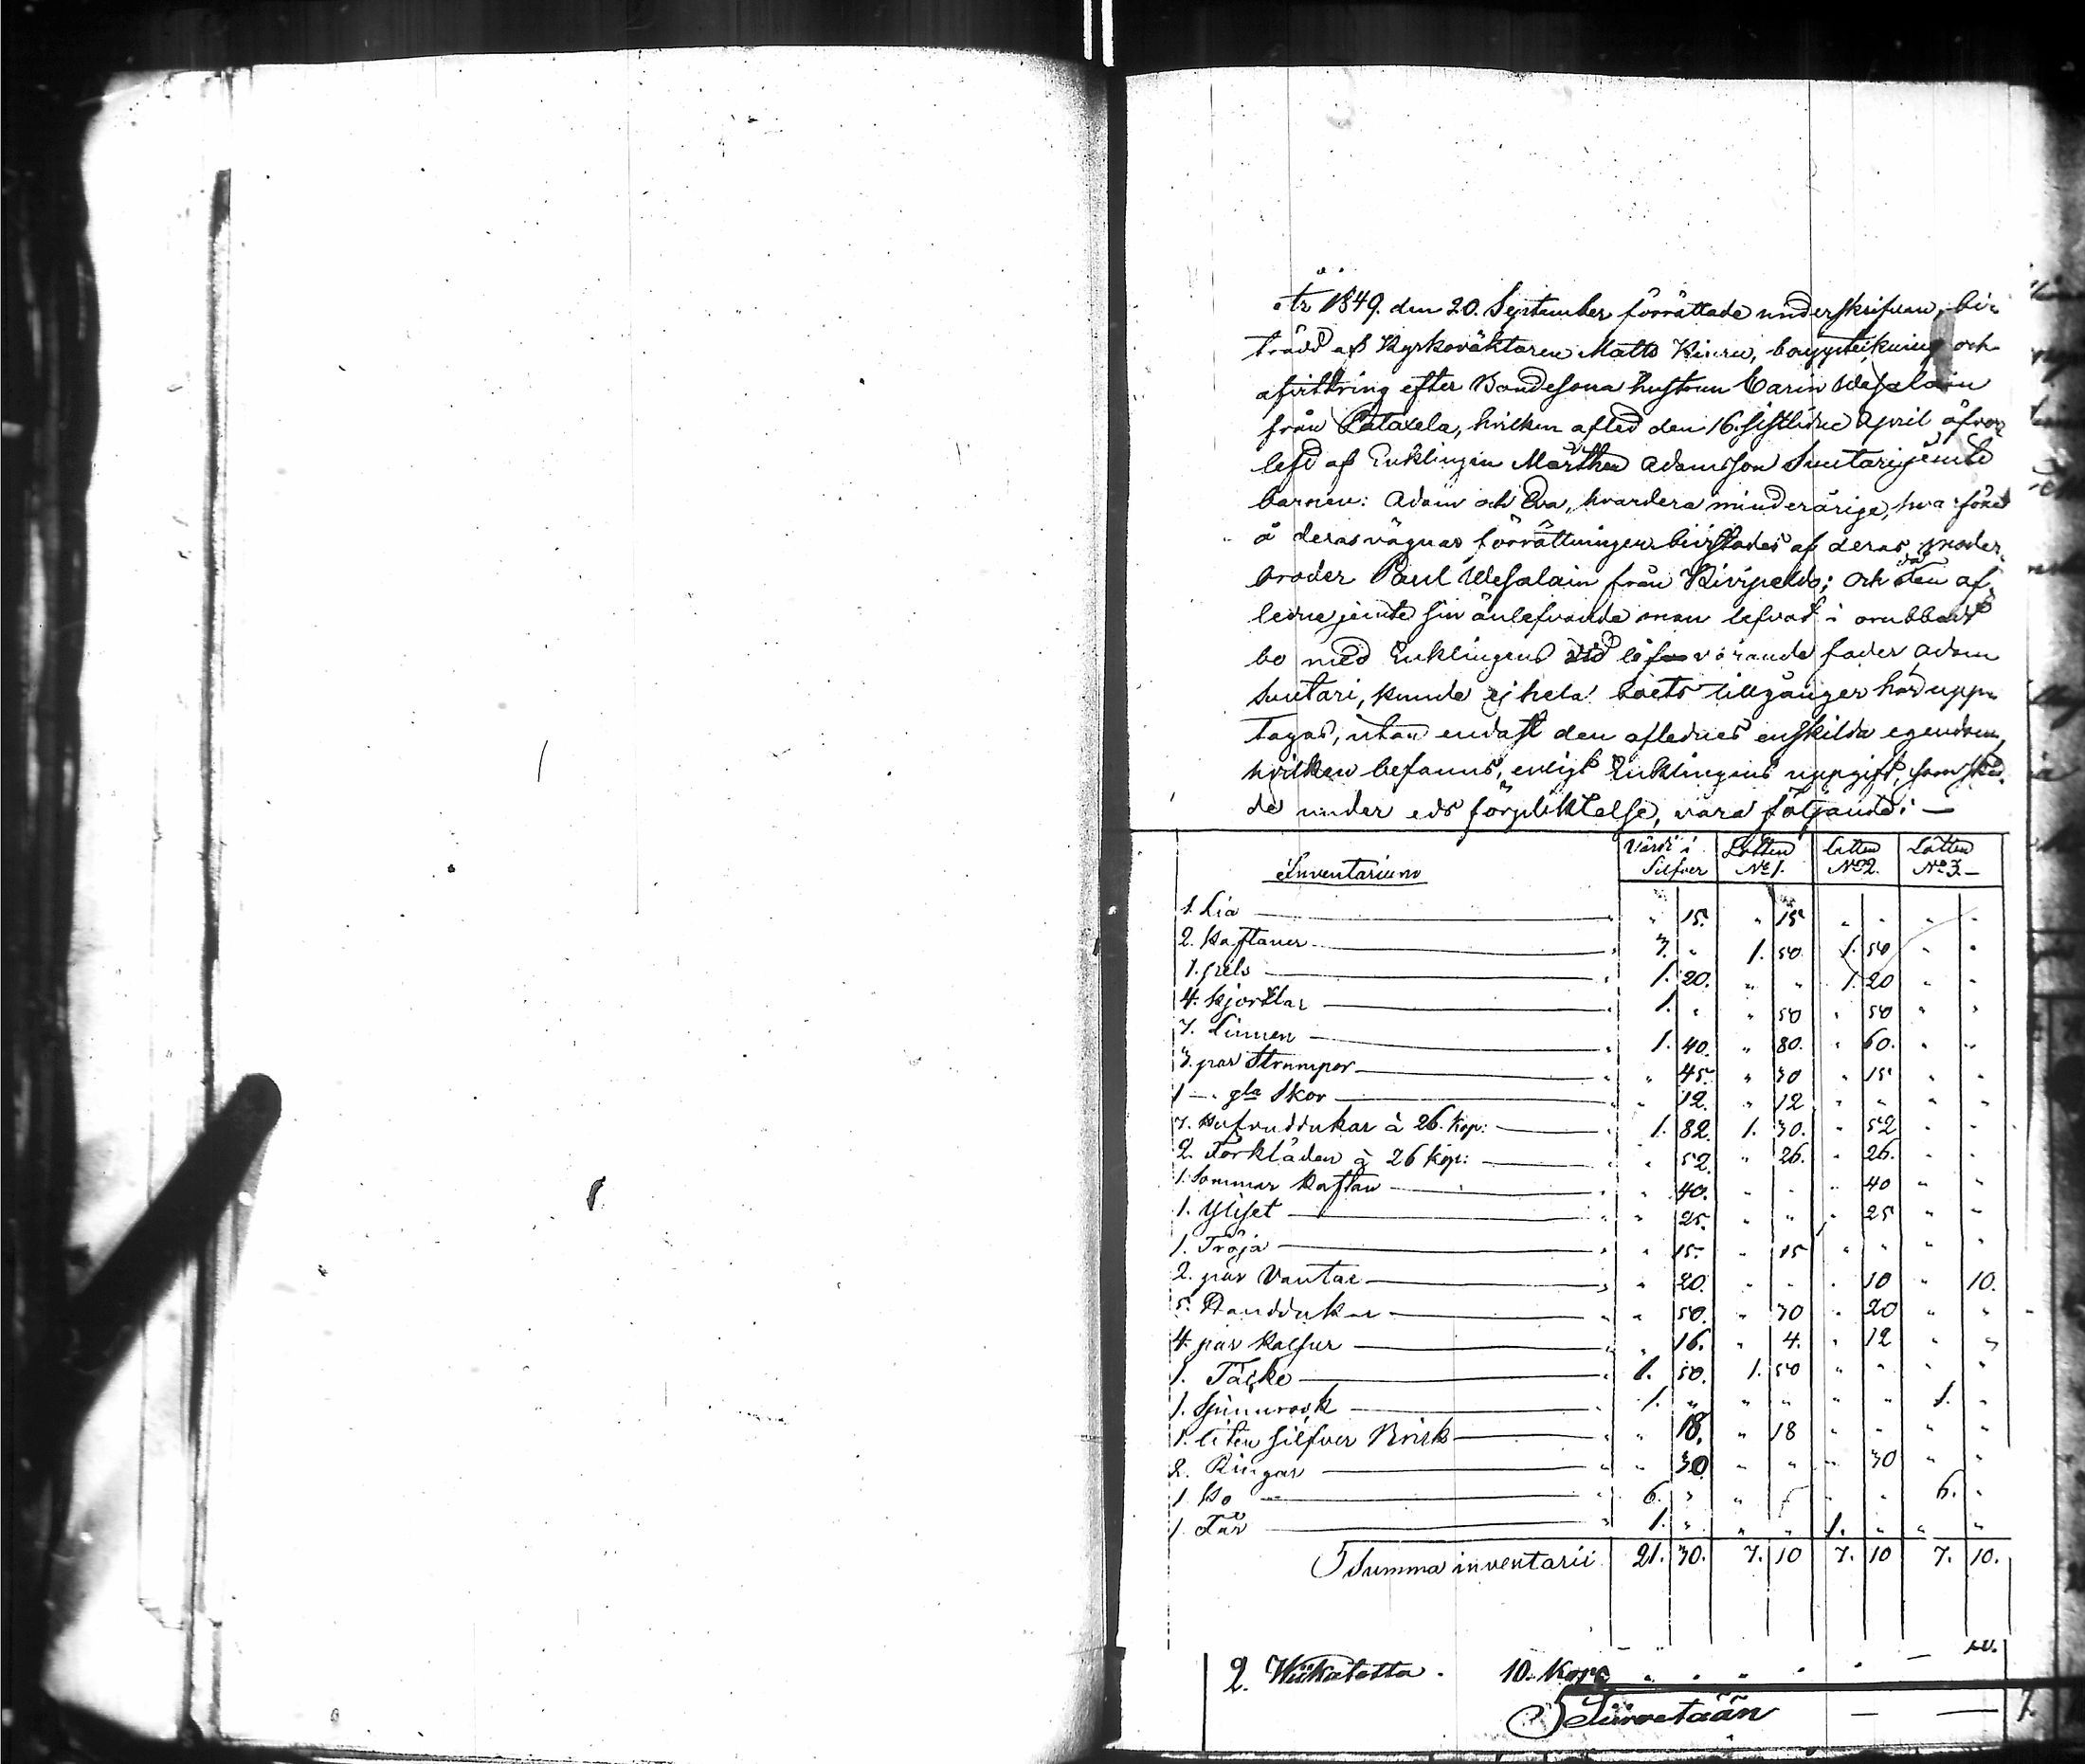 År 1849. den 20. September förrättade underskrifven, bi-
trädd af Kyrkoväktaren Matts Kinnu, bouppteikning och
afvittring efter Bondesona hustrun Carin Wesalain
från Pataxela, hvilken afled den 16. sistlidne April öfver
lefd af Enklingen Mårthen Adamsson Suutari jemte
barnen: Adam och Eva, hvardera minderårige, hvarföre
å deras vägnar förrättningen bivistades af deras moder
broder Paul Wesalain från Kivipeldo; Och då den af
ledne jemte sin änlefvande man lefvat i orubbadt
bo med Enklingens vid lif varande fader Adam
Suutari, kunde ej hela boets tillgånger här upp-
tagas, utan endast den aflednes enskilda egendom,
hvilken befanns, enligt Enklingens uppgift, som sked
de under eds förpliktelse, vara följande: —
Inventarium Värde i Silfver Lotten No 1. Lotten No 2. Lotten No 3. —
1. Lia — " 15. " 15 " " " "
2. Kaftaner — 3. " 1. 50. 1. 50 " "
1. pels — 1. 20. " " 1. 20 " "
4. kjortlar — 1. " " 50 " 50 " "
7. Linnen — 1. 40. " 80. " 60. " "
3. par Strumpor — " 45. " 30 " 15 " "
1 — " gla Skor — " 12. " 12 " " " "
7. Hufvuddukar à 26. kop: — 1. 82. 1. 30. " 52 " "
2. Förkläden à 26 kop: — " 52. " 26. " 26. " "
1. Sommar kaftan — " 40. " " " 40 " "
1. Yliset — " 25. " " " 25 " "
1. Tröja — " 15. " 15 " " " "
2. par Vantar — " 20. " " " 10 " 10.
5. Handdukar — " 50. " 30 " 20 " "
4. par kalsur — " 16. " 4. " 12 " "
1. Täcke — 1. 50. 1. 50 " " " "
1. Spinnrock — 1. " " " " " 1. "
1. liten silfver Brisk — " 18. " 18 " " " "
2. Ringar — " 30 " " " 30 " "
1. Ko — 6. " " " " " 6. "
1. Får — 1. " " " 1. " " "
Summa inventarii 21. 30. 7. 10 7. 10 7. 10.
2. Wiikatetta . 10. Kop
Siirretään — — 7.